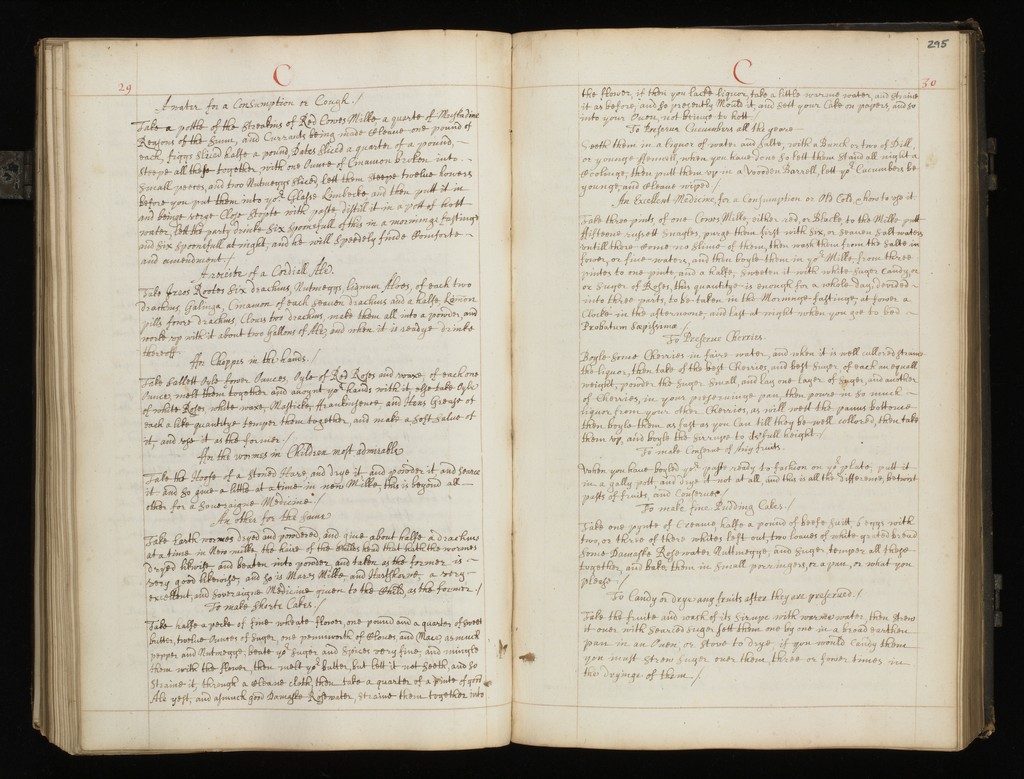 29
C
A water for a Consumption or Cough./
Take a pottle of the Streakins of Red Cowes Milke, a quarte of Muskadine
Reasons of the Sunn, and Currants being made Cleane one pound of
each, figgs sliced halfe a pound, Dates sliced a quarter of a pound,
steepe all these together with one Ounce of Cinamon broken into
small peeces, and two Nutmeggs sliced, lett them steepe twelve howers
before you put them into yor Glasse Limbecke and then putt it in
and beinge verye Close stopte with paste, distill it in a pott of hott
water, lett the party drinke Six spoonefull of this in a morninge fastinge
and Six spoonefull at night, and he will speedely finde Comforte
and amendment./
A receite of a Cordiall Ale.
Take Rootes Six drachms, Nutmeggs, Lignum Aloes, of each two
drachms, Galinga, Cinamon of each seaven drachms and a halfe, Lemon
pills fowre drachms, Cloves two drachms, make them all into a powder, and
worke vp with it about two Gallons of Ale, and when it is readye drinke
thereoff
For Chopps in the hands./
Take Sallett Oyle fower Ounces, Oyle of Red Roses and waxe, of each one
Ounce, melt them together and anoynt yor hands with it, else take Oyle
of white Roses, white waxe, Masticke, Frankinsence, and Hens Grease of
each a like quantitye temper them together, and make a soft salve of
it, and vse it as the former./
For the wormes in Children most admirable
Take the Hoofe of a Stoned Hare, and drye it, and powder it, and searce
it and so give a little at a time in new Milke, this is beyond all
other for a Soveraigne Medicine
An other for the same
Take Earth wormes dryed and powdered, and give about halfe a drachm
at a time in New milke the haire of the Childes head that hath the wormes
dryed likwise and beaten into powder and taken as the former is
very good likewise, and so is Mares Milke, and Hartshorne, a very
excellent, and soveraigne Medicine given to the Child, as the former./
To make Shorte Cakes./
Take halfe a pecke of fine wheate flower, one pound and a quarter of sweet
butter, twelve Ounces of Suger, one pennworth of Cloves, and Mace, as much
pepper and Nutmegge, beate yor Suger and Spices very fine, and mingle
them with the flower, then melt yor butter, but lett it not seeth, and so
straine it, through a Cleane cloth, then take a quarter of a pinte of good
Ale yest, and asmuch good Damaske Rosewater, straine them together into
295
C
30
the flower, if then you lacke liquor, take a little warme water, and straine
it as before, and so presently Mould it, and sett your Cake on papers, and so
into your Oven, not beinge to hott
To Preserve Cucumbers all the yeare
Seeth them in a liquor of water and salte, with a Bunch or two of Dill,
or younge ffennell, when you have done so lett them stand all night a
Coolinge, then putt them vp in a Wooden Barrell, lett yor Cucumbers be
younge, and Cleane wiped./
An Excellent Medicine for a Consumption or Old Cold, & how to vse it.
Take three pints of one Cowes Milke, either red, or Blacke, to the Milke putt
fifteene russett Snayles, purge them first with Six, or Seaven Salt waters
vntill there Come no slime of them, then wash them from the Salte in
fower, or five waters, and then boyle them in yor Milke, from three
pintes to one pinte, and a halfe, Sweeten it with white Suger Candy, or
or Suger of Roses, this quantitye is enough for a whole day, devided
into three parts, to be taken in the Morninge fastinge, at fower a
Clocke in the afternoone, and last at night when you goe to bed
Probatum Sæpissima./
To Preserve Cherries.
Boyle some Cherries in faire water, and when it is well cullored straine
the liquor, then take of the best Cherries, and best Suger, of each an equall
weight, powder the Suger small, and lay one Layer of Suger, and another
of Cherries, in your preservinge pan, then powre in so much
liquor from your other Cherries, as will wett the panns bottome
then boyle them as fast as you Can till they be well collored, then take
them vp, and boyle the Sirrupe to its full height./
To make Conserve of Any fruits.
When you have boyled yor paste ready to fashion on yor plate, putt it
in a gally pott, and drye it not at all, and this is all the difference, betwixt
pasts of fruits, and Conserves./
To make fine Pudding Cakes./
Take one pynte of Creame, halfe a pound of beefe Suitt, 5 eggs with
two, or three of there whites left out, two loaves of white grated bread
some Damaske Rosewater Nuttmegge, and Suger, temper all these
together, and bake them in small porringers, or a pan, or what you
please./
To Candy or drye any fruits after they are preserved./
Take the fruite and wash of its Sirrupe with warme water, then strew
it over with Searced Suger, sett them one by one in a broad earthen
pan, in an Oven, or stove to drye, if you would Candy them
you must strew Suger over them three or fower times in
the dryinge of them./